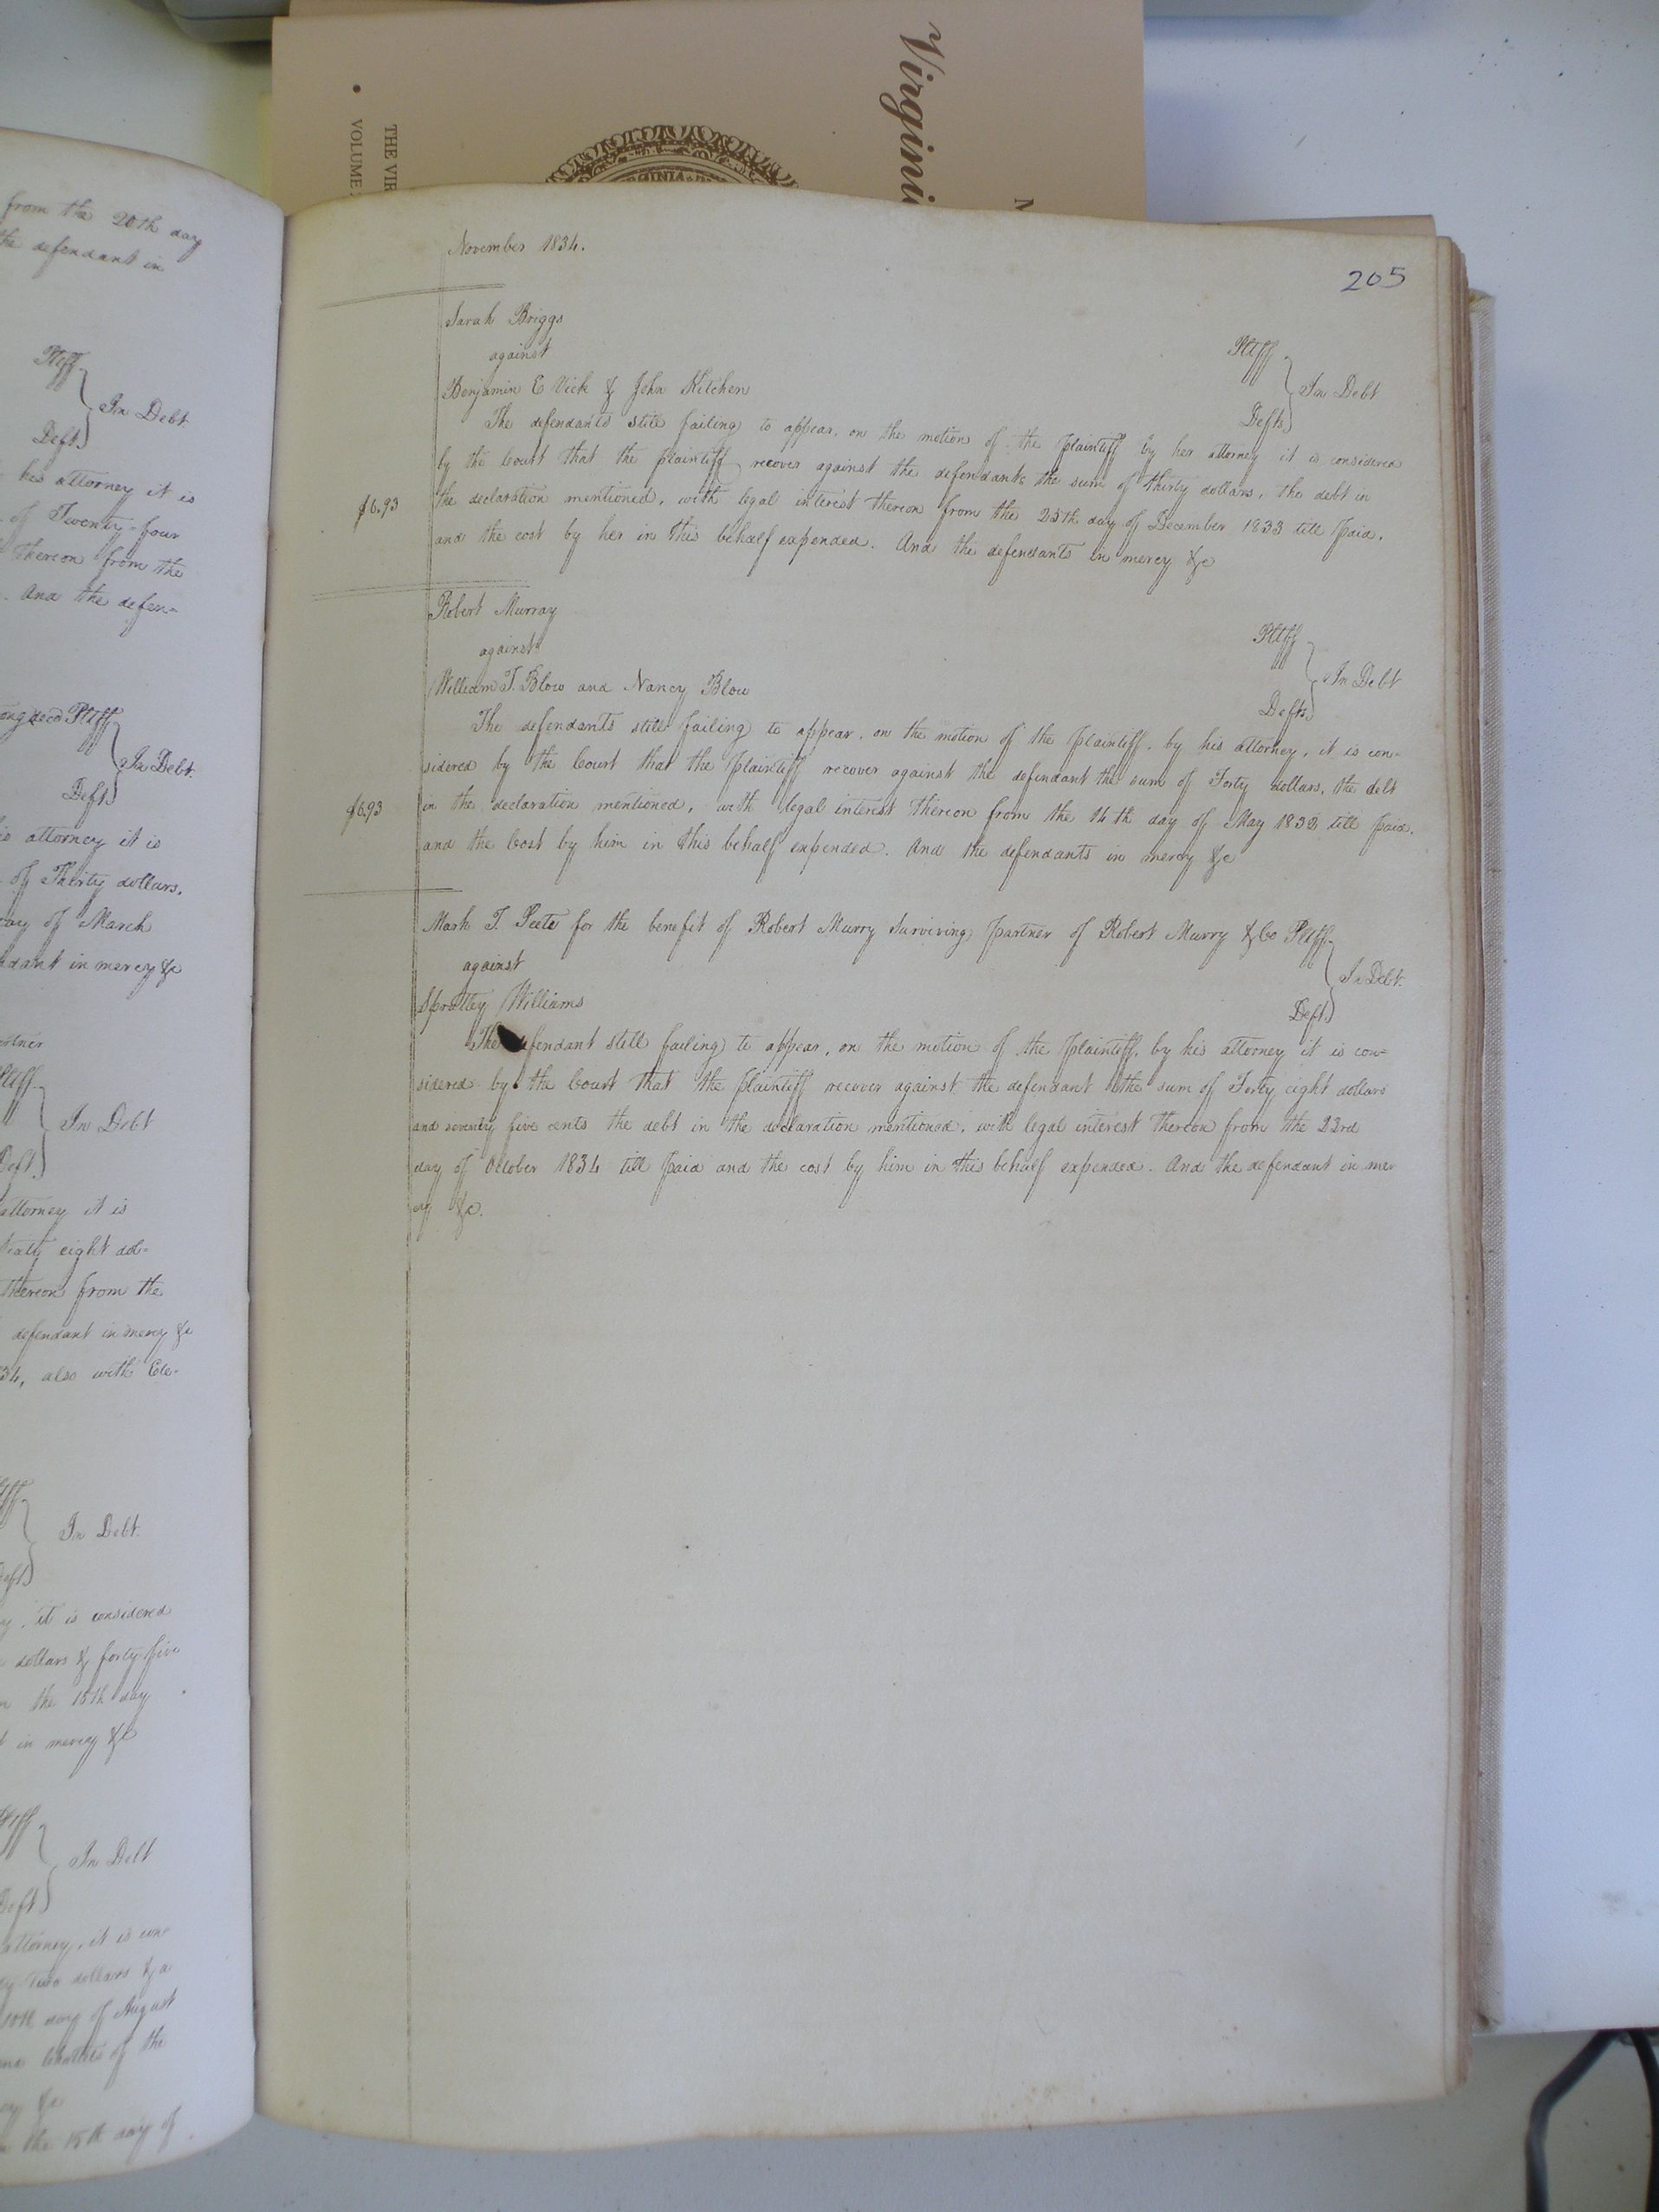 Virgini
THE VIR
VOLUME
from the 20th day
the defendant in
Pltff
In Debt
Deft
his attorney it is
of Twenty-four
thereon from the
. And the defen=
Pltff
In Debt
Deft
attorney it is
of Thirty dollars,
day of March
in mercy &c
Pltff
In Debt
Deft
attorney it is
eight dol-
thereon from the
defendant in mercy &c
34, also with
In Debt
it is considered
dollars & forty five
the 15th day
in mercy &c
In Debt
Deft
attorney, it is con-
two dollars &
10th day of August
of the
&c
the 15th day of
November 1834.
205
Sarah Briggs Pltff
against In Debt
Benjamin E Vick & John Kitchen Defts
The defendants still failing to appear, on the motion of the plaintiff by her attorney it is considered
by the Court that the plaintiff recover against the defendants the sum of thirty dollars, the debt in
$6.93 the declaration mentioned, with legal interest thereon from the 25th day of December 1833 till paid,
and the cost by her in this behalf expended. And the defendants in mercy &c
Robert Murray Pltff
against In Debt
William T. Blow and Nancy Blow Defts
The defendants still failing to appear, on the motion of the plaintiff, by his attorney, it is con-
sidered by the Court that the plaintiff recover against the defendant the sum of Forty dollars, the debt
$6.93 in the declaration mentioned, with legal interest thereon from the 14th day of May 1832 till paid,
and the Cost by him in this behalf expended. And the defendants in mercy &c
Mark T. Peete for the benefit of Robert Murry Surviving partner of Robert Murry & Co Pltff
against In Debt
Spratley Williams Deft
The efendant still failing to appear, on the motion of the plaintiff, by his attorney it is con=
sidered by the Court that the plaintiff recover against the defendant the sum of Forty eight dollars
and seventy five cents the debt in the declaration mentioned, with legal interest thereon from the 23rd
day of October 1834 till paid and the cost by him in this behalf expended. And the defendant in mer
cy &c.